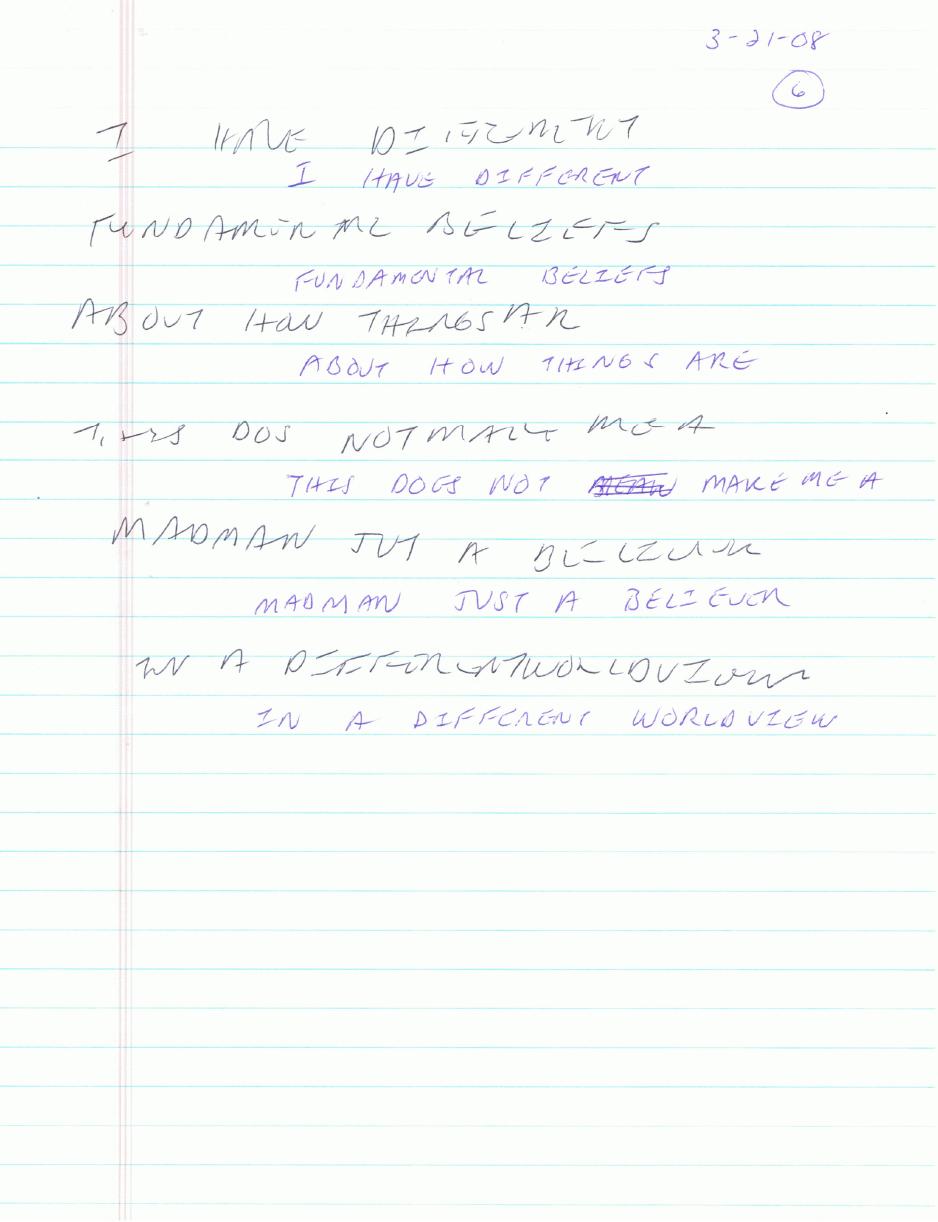 3-21-08
6
I HAVE DIFFERENT
I HAVE DIFFERENT
FUNDAMENTAL BELIEFS
FUNDAMENTAL BELIEFS
ABOUT HOW THINGS AR
ABOUT HOW THINGS ARE
DOS NOT MAKE ME A
THIS DOES NOT MAKE ME A
MADMAN JUT A BELIEVER
MADMAN JUST A BELIEVER
IN A DIFFERENT WORLDVIEW
IN A DIFFERENT WORLDVIEW